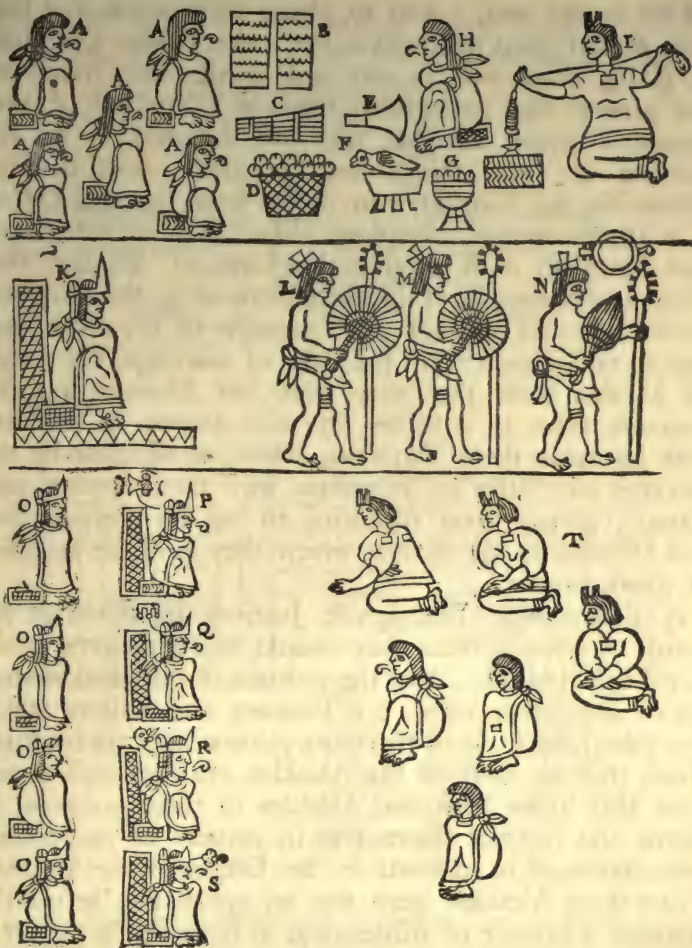 A A B H I
A C E
A A D F G
K L M N
O P T
O Q
O R
O S